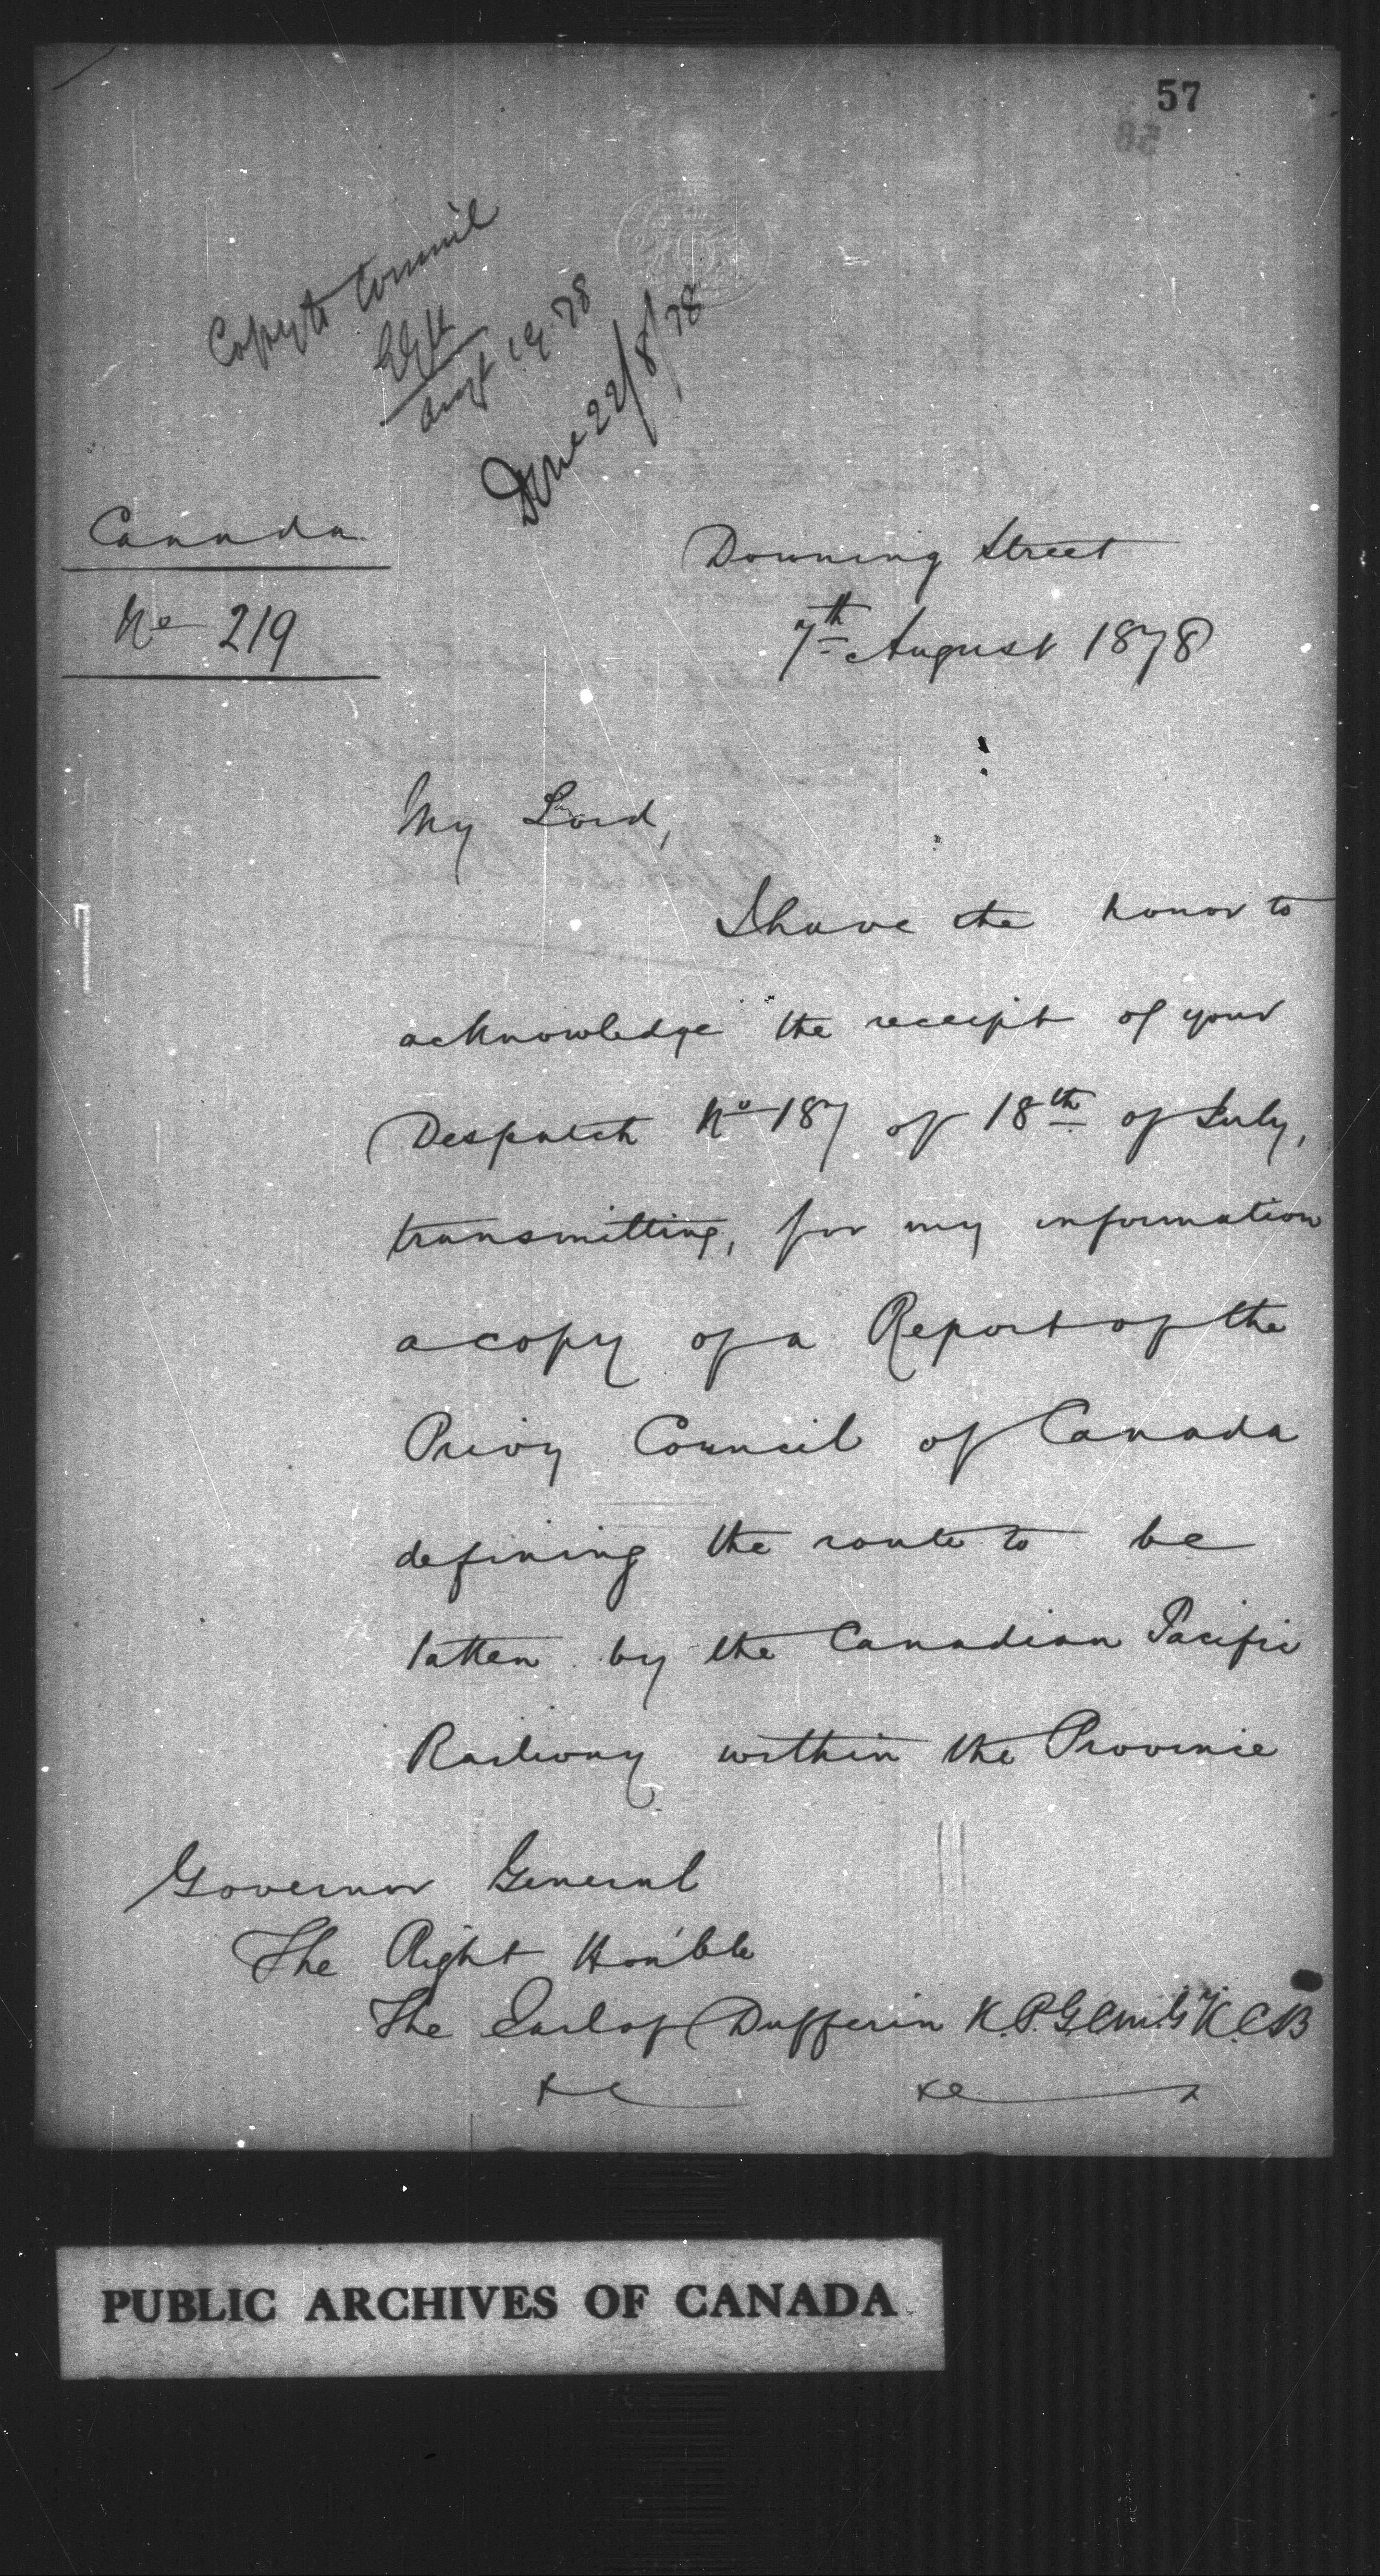 57
58
Copy to Council
Augt 19. 78
Done 22/8/78
Canada.
No 219
Downing Street
7th August 1878
My Lord,
I have the honor to
acknowledge the receipt of your
Despatch No 187 of 18th of July,
transmitting, for my information
a copy of a Report of the
Privy Council of Canada
defining the route to be
taken by the Canadian Pacific
Railway within the Province
Governor General
The Right Honble
The Earl of Dufferin K.P. G.C.M.G. K.C.B.
&c &c
PUBLIC ARCHIVES OF CANADA